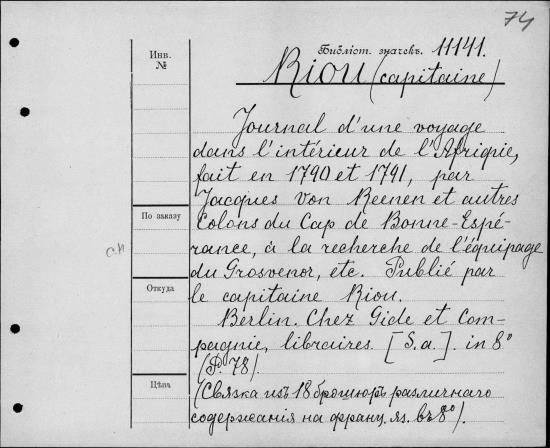 74
Инв. №
Библіот. значекъ. 11141.
Riou (capitaine)
Journal d'une voyage
dans l'intérieur de l'Afriqie,
fait en 1790 et 1791, par
Jacques von Reenen et autres
По заказу
Colons du Cap de Bonne-Espé-
rance, à la recherche de l'équipage
du Grosvenor, etc. Publié par
Откуда
le capitaine Riou.
Berlin. Chez Gide et Com-
pagnie, libraires. [S. a.]. in 8°
(P. 78).
Цѣна
(Связка изъ 18 брошюръ различнаго
содержанія на франц. яз. въ 8°).